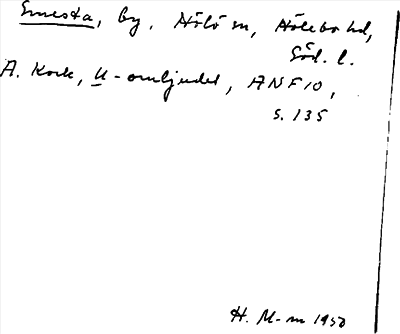 Smesta, by. Hölö sn, Hölebo hd,
Söd. l.
A. Kock, U-omljudet, ANF 10,
s. 135
H. M-m 1950